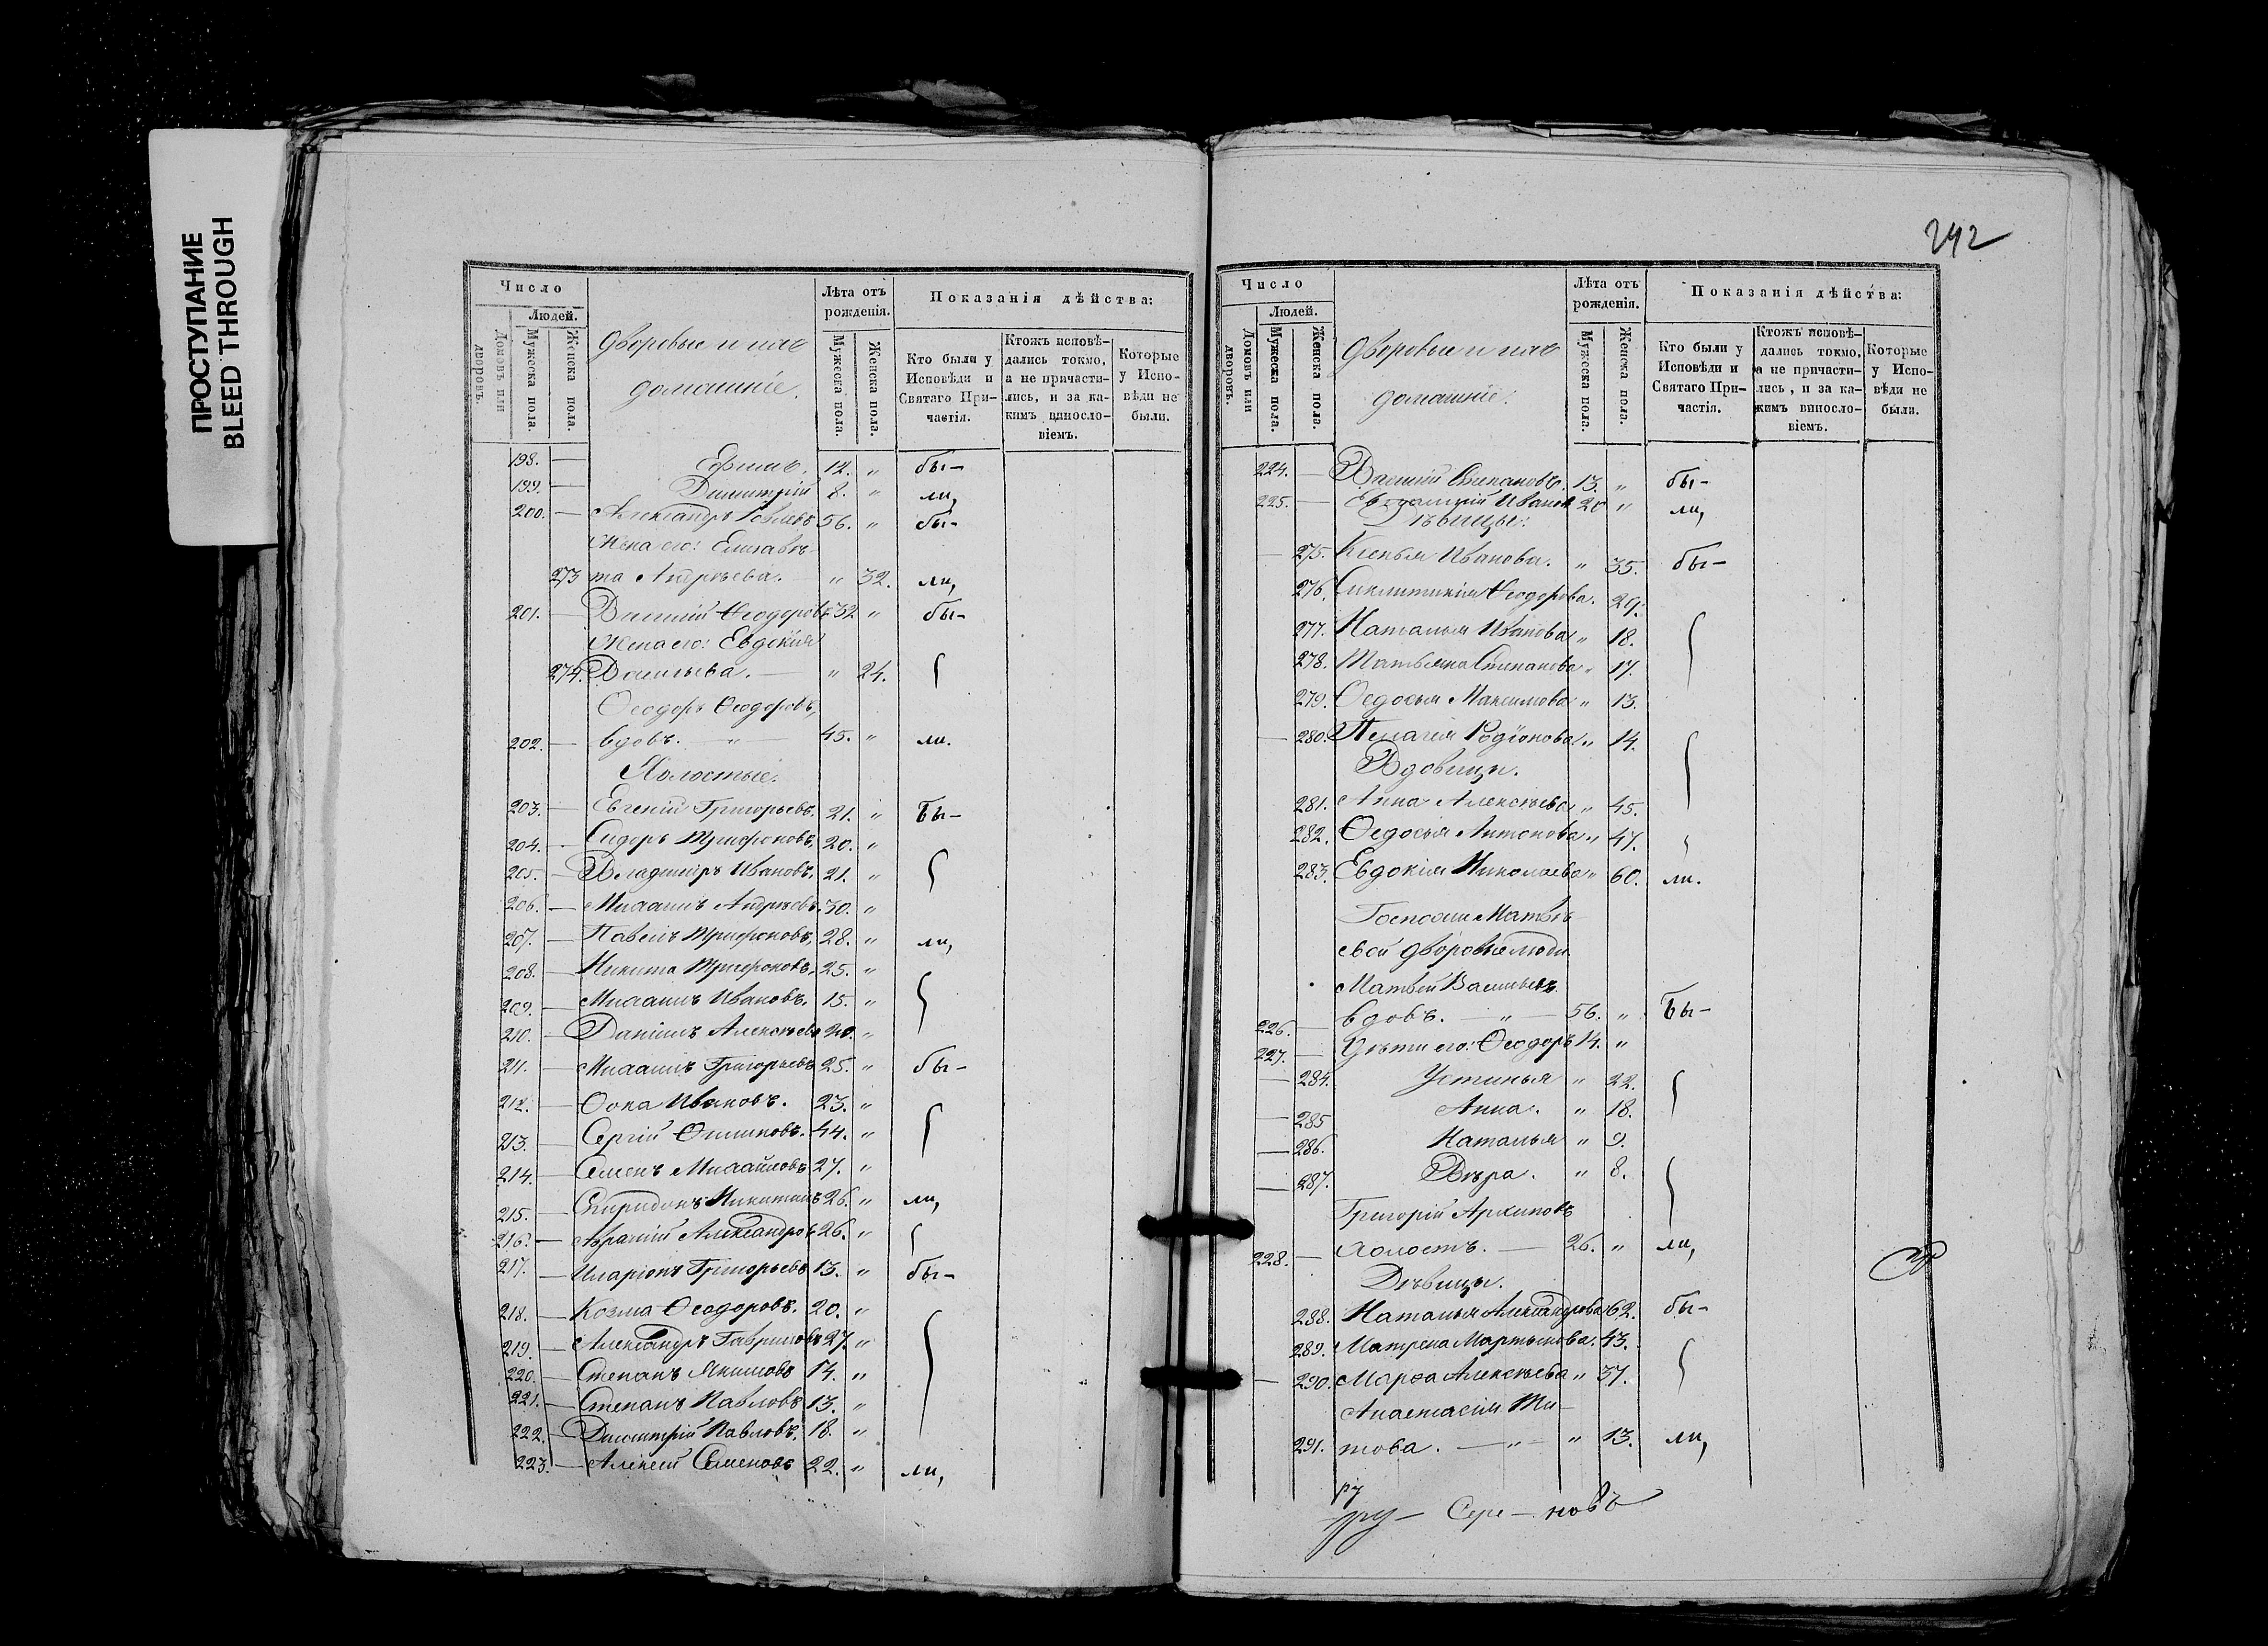 ПРОСТУПАНИЕ
BLEED THROUGH
Число
Людей.
Домовъ или дворовъ.
Мужеска пола.
Женска пола.
Дворовые и ихъ
домашніе.
Лѣта отъ рожденія.
Мужеска пола.
Женска пола.
Показанія дѣйства:
Кто были у Исповѣди и Святаго Причастія.
Ктожъ исповѣдались токмо, а не причастились, и за какимъ винословіемъ.
Которые у Исповѣди не были.
198. — Ефимъ. 12. „ бы-
199. — Димитрій 8. „ ли,
200. — Александръ 56. „ бы-
Жена его: Елизаве-
273 та Андреева. — „ 32. ли,
201. — Василій Ѳеодоровъ 32 „ бы-
Жена его: Евдокія
274. Васильева. — „ 24.
Ѳеодоръ Ѳеодоровъ,
202. — вдовъ. — „ — 45. „ ли.
Холостые.
203. — Евгеній Григорьевъ. 21. „ бы-
204. — Сидоръ Трифоновъ. 20. „
205. — Владиміръ Ивановъ. 21. „
206. — Михаилъ Андреевъ. 30. „
207. — Павелъ Трифоновъ. 28. „ ли,
208. — Никита Трифоновъ. 25. „
209. — Михаилъ Ивановъ. 15. „
210. — Даніилъ Алексѣевъ 20. „
211. — Михаилъ Григорьевъ 25. „ бы-
212. — Ѳока Ивановъ. 23. „
213. — Сергій 44. „
214. — Семенъ Михайловъ 27. „
215. — Спиридонъ Никитинъ 26. „ ли,
216. — Александровъ 26. „
217. — Иларіонъ Григорьевъ 13. „ бы-
218. — Козма Ѳеодоровъ. 20. „
219. — Александръ Гавриловъ 27. „
220. — Степанъ Якимовъ 14. „
221. — Степанъ Павловъ 13. „
222. — Димитрій Павловъ. 18. „
223. — Алексей Семеновъ 22. „ ли,
242
Число
Людей.
Домовъ или дворовъ.
Мужеска пола.
Женска пола.
Дворовые и ихъ
домашніе.
Лѣта отъ рожденія.
Мужеска пола.
Женска пола.
Показанія дѣйства:
Кто были у Исповѣди и Святаго Причастія.
Ктожъ исповѣдались токмо, а не причастились, и за какимъ винословіемъ.
Которые у Исповѣди не были.
224. — Василій Степановъ. 13. „ бы-
225. — Ивановъ 20 „ ли,
Дѣвицы:
— 275. Ксенья Иванова. „ 35. бы-
276. Синклитикія Ѳеодорова. 29.
277. Наталья Иванова „ 18.
278. Татьяна Степанова „ 17.
279. Ѳедосья Максимова „ 13.
— 280. Пелагія Родіонова „ 14.
Вдовицы.
281. Анна Алексѣева „ 45.
282. Ѳедосья Антонова „ 47.
283. Евдокія Николаева „ 60. ли.
Госпожи Матвѣ-
евой дворовые люди.
Матвѣй Васильевъ
226. — вдовъ. — „ — 56. „ бы-
227. — Дѣти его: Ѳеодоръ 14. „
— 284. Устинья „ 22.
— 285 Анна. „ 18.
— 286. Наталья „ 9.
— 287. Вѣра. „ 8.
Григорій Архиповъ
228. — холостъ. — 26. „ ли,
Дѣвицы.
288. Наталья Александрова 62. бы-
289. Матрена Мартынова. 43.
— 290. Марѳа Алексѣева „ 37.
Анастасія Ти-
291. това. — „ — „ 13. ли,
Сере — новъ